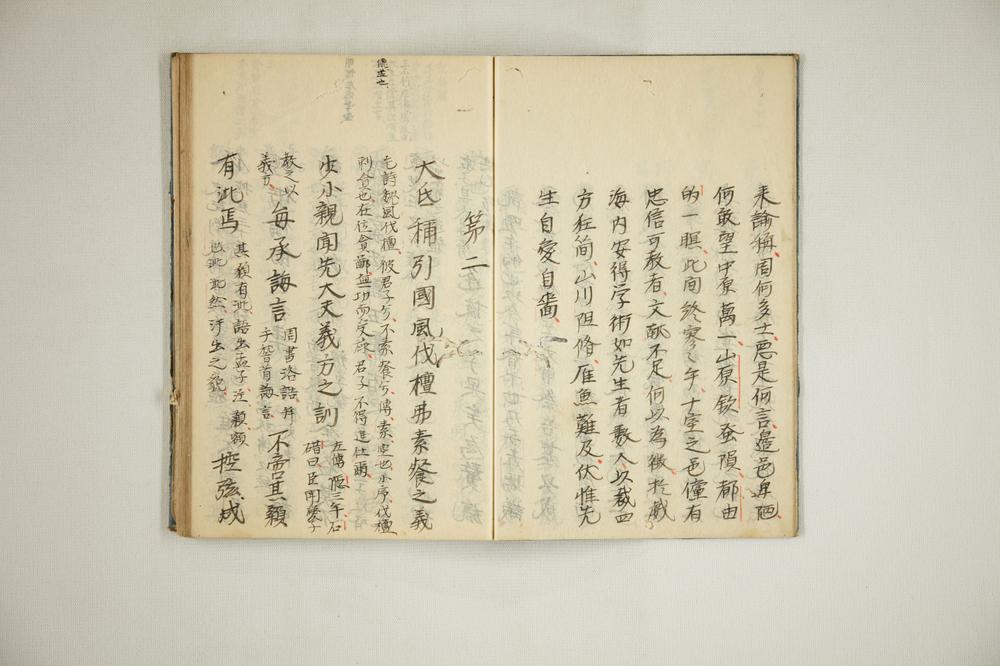 来諭稱周何多士悪是何言邉邑卑陋
何敢望中原萬一山原欽蚕隕都由
的一瞑此間終寥々乎十室之邑僅有
忠信可教者文献不足何以為徴於戯
海内安得学術如先生者数人以裁四
方狂简山川阻脩雁魚難及伏惟先
生自愛自嗇
第二
大氐稱引國風伐檀弗素餐之義
毛詩魏風伐檀彼君子兮不素餐兮傳素空也小序伐檀
刺貪也在位貪鄙無功而受禄君子不得進仕爾
少小親聞先大夫義方之訓
左傳隠三年石
碏曰臣聞愛子
教之以
義方
毎承誨言
周書洛誥拜
手稽首誨言
不啻其顙
有泚焉
其顙有泚語出孟子注顙額
也泚泚然汗出之貌
控弦成